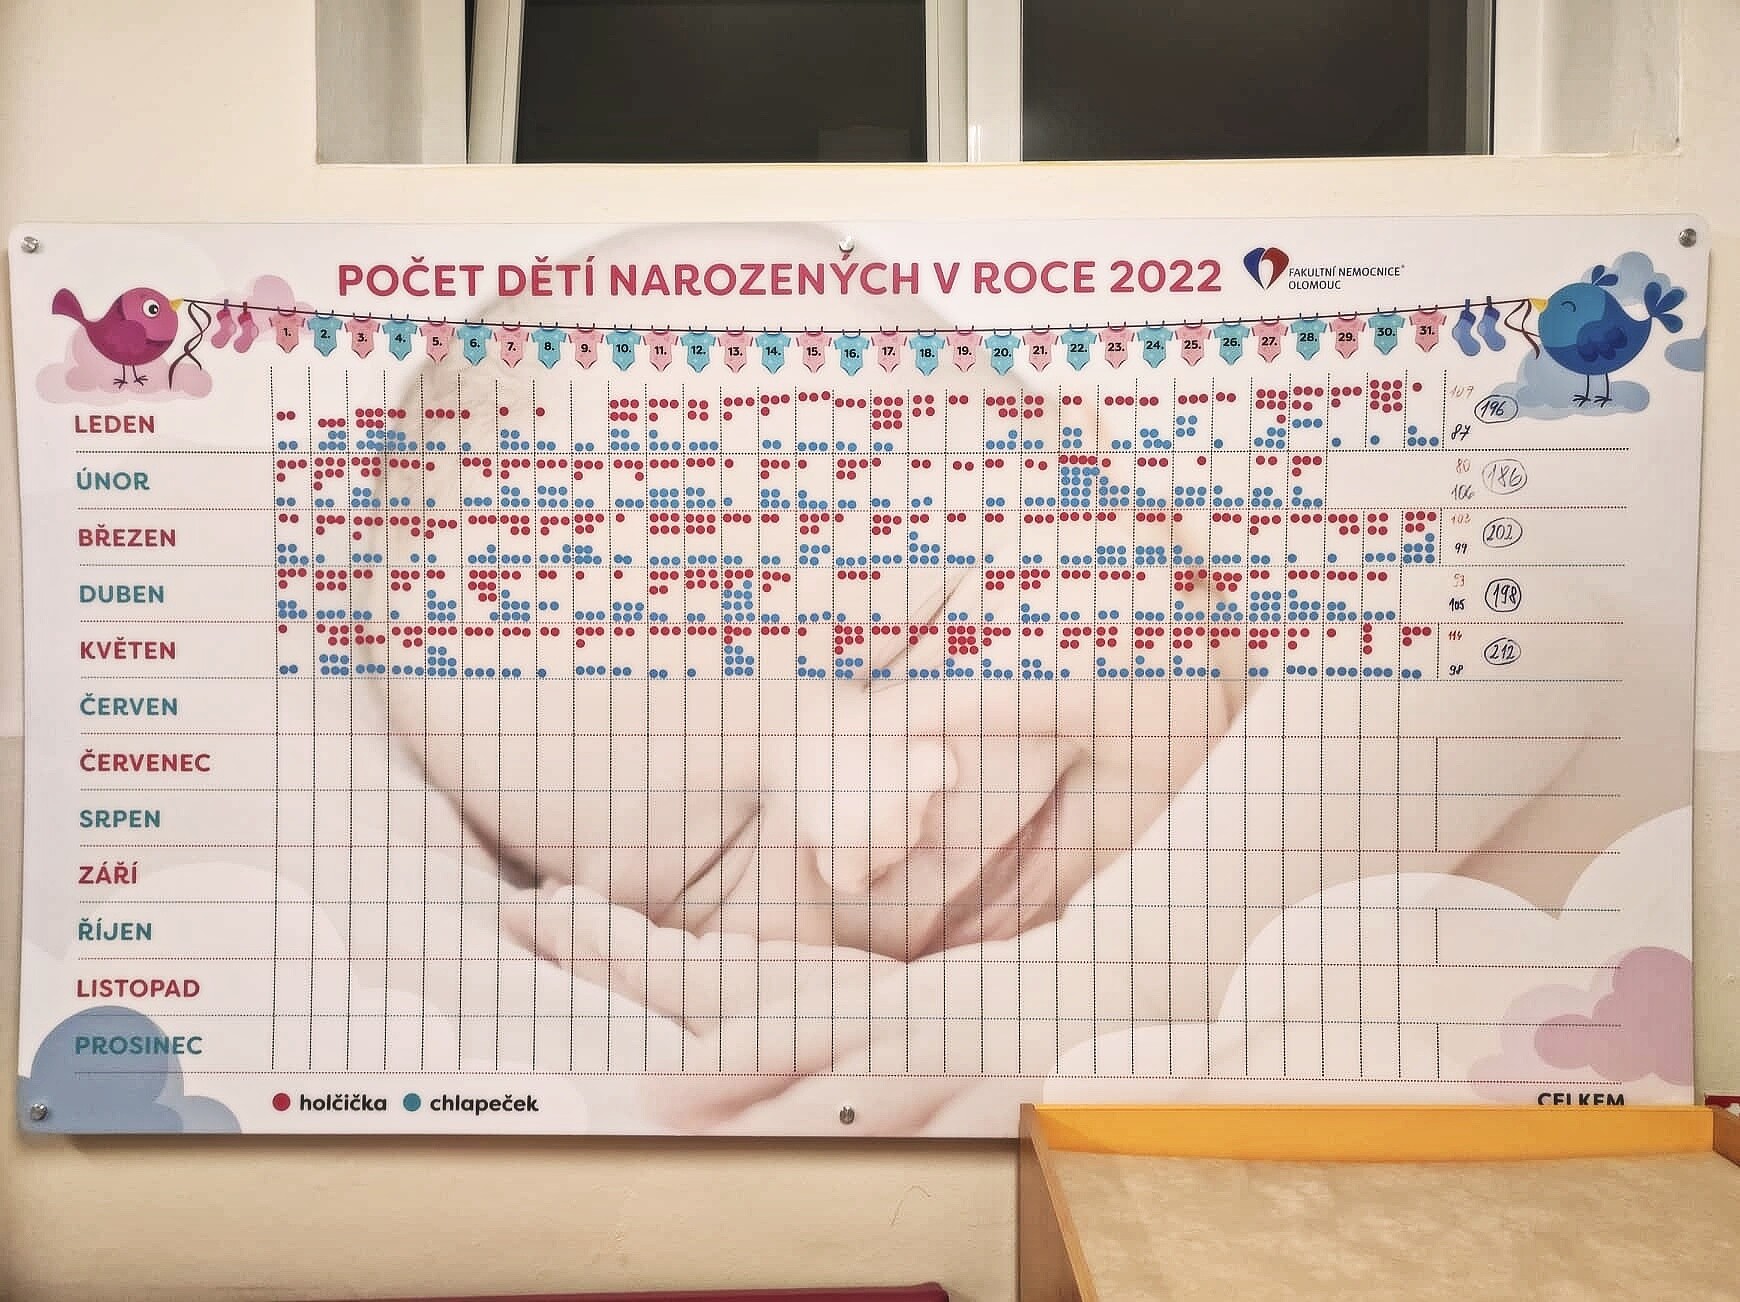 POČET DĚTÍ NAROZENÝCH V ROCE 2022
FAKULTNÍ NEMOCNICE®
OLOMOUC
1. 2. 3. 4. 5. 6. 7. 8. 9. 10. 11. 12. 13. 14. 15. 16. 17. 18. 19. 20. 21. 22. 23. 24. 25. 26. 27. 28. 29. 30. 31.
LEDEN 109 87 196
ÚNOR 80 106 186
BŘEZEN 103 99 202
DUBEN 93 105 198
KVĚTEN 114 98 212
ČERVEN
ČERVENEC
SRPEN
ZÁŘÍ
ŘÍJEN
LISTOPAD
PROSINEC
holčička chlapeček
CELKEM